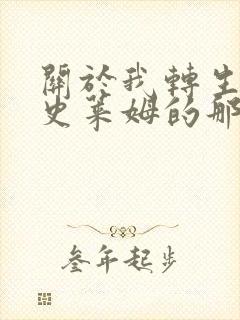 關於我轉生
史萊姆的那
叁年起步